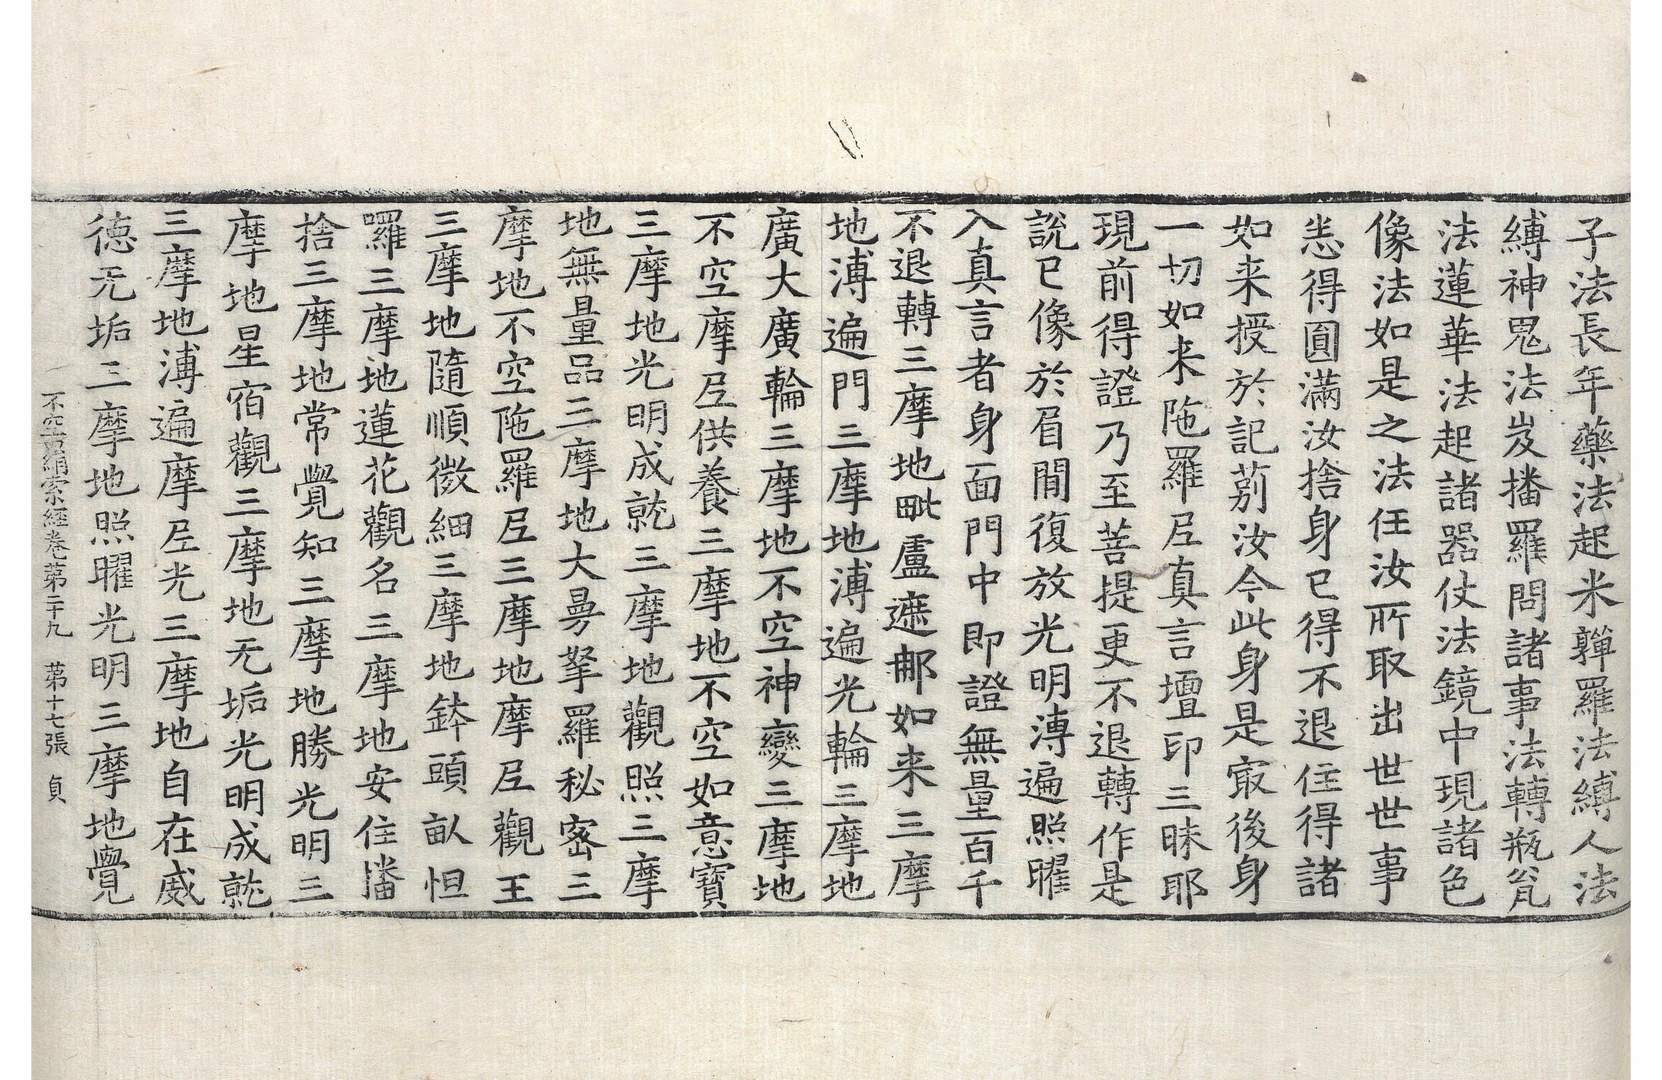 子法長年藥法起米軃羅法縛人法
縛神鬼法岌播羅問諸事法轉瓶瓫
法蓮華法起諸器仗法鏡中現諸色
像法如是之法任汝所取出世世事
恙得圓滿汝捨身已得不退住得諸
如来授於記莂汝今此身是冣後身
一切如来陁羅𡰱真言壇印三昧耶
現前得證乃至菩提更不退轉作是
說已像於眉閒復放光明溥遍照曜
入真言者身面門中即證無量百千
不退轉三摩地毗盧遮那如来三摩
地溥遍門三摩地溥遍光輪三摩地
廣大廣輪三摩地不空神變三摩地
不空摩𡰱供養三摩地不空如意寶
三摩地光明成就三摩地觀照三摩
地無量品三摩地大曼拏羅秘密三
摩地不空陁羅𡰱三摩地摩𡰱觀王
三摩地隨順微細三摩地鉢頭畝怛
囉三摩地蓮花觀名三摩地安住旛
捨三摩地常覺知三摩地勝光明三
摩地星宿觀三摩地无垢光明成就
三摩地溥遍摩𡰱光三摩地自在威
德无垢三摩地照曜光明三摩地覺
不空罥索經卷第二十九 第十七張 貞